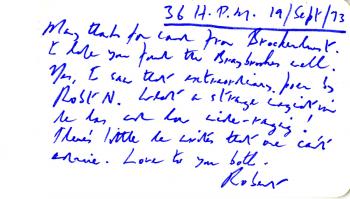 36 H.P.M. 19/Sept/73
Many thanks for card from Brockenhurst.
I hope you found the Braybrookes well.
Yes, I saw that extraordinary poem by
Robt N. What a strange imagination
he has and how wide-ranging!
There's little he writes that one can't
admire. Love to you both.
Robert